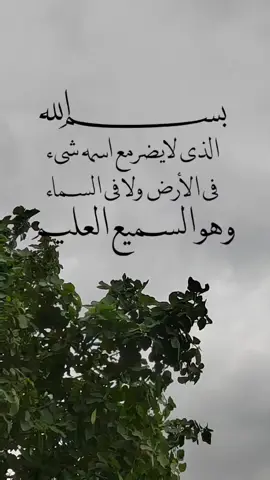 بسم الله
الذي لا يضر مع اسمه شيء
في الأرض ولا في السماء
وهو السميع العليم